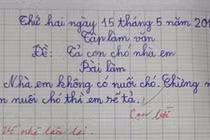 Thứ hai ngày 15 tháng 5 năm 201
Tập làm văn
Đề: Tả con chó nhà em
Bài làm
Nhà em không có nuôi chó. Chừng n
em nuôi chó thì em sẽ tả.
Con lười
Về nhà làm lại.